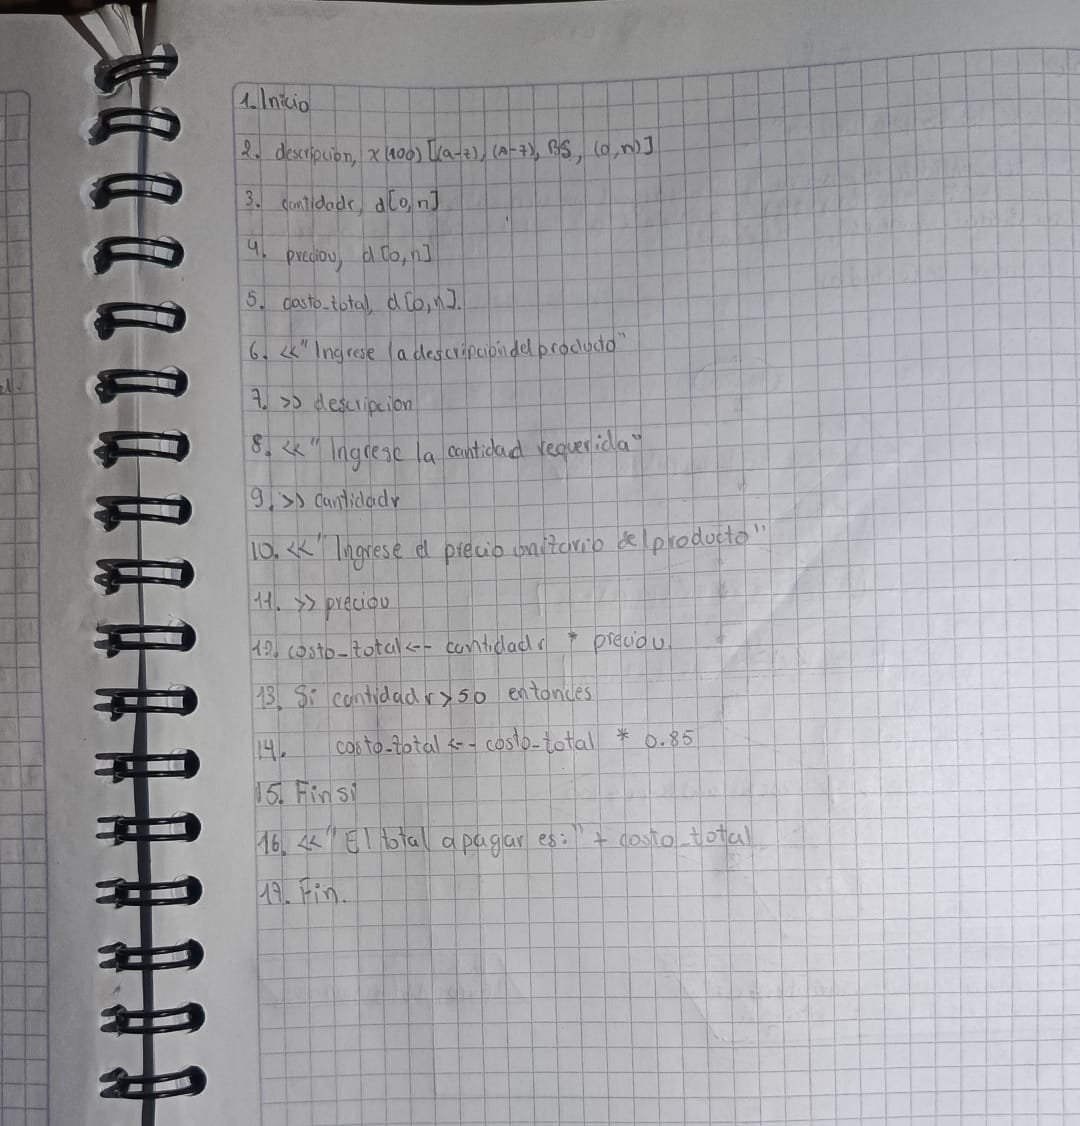 1. Inicio
2. descripcion, x(100) [(a-z), (A-Z), BS, (0,n)]
3. cantidadr, d[0,n]
4. preciou, d[0,n]
5. costo-total, d[0,n].
6. <<"Ingrese la descripcion del producto"
7. >> descripcion
8. <<"Ingrese la cantidad requerida"
9. >> cantidadr
10. <<"Ingrese el precio unitario del producto"
11. >> preciou
12. costo-total <-- cantidadr * preciou.
13. Si cantidadr > 50 entonces
14. costo-total <-- costo-total * 0.85
15. Finsi
16. <<"El total a pagar es:" + costo_total
17. Fin.